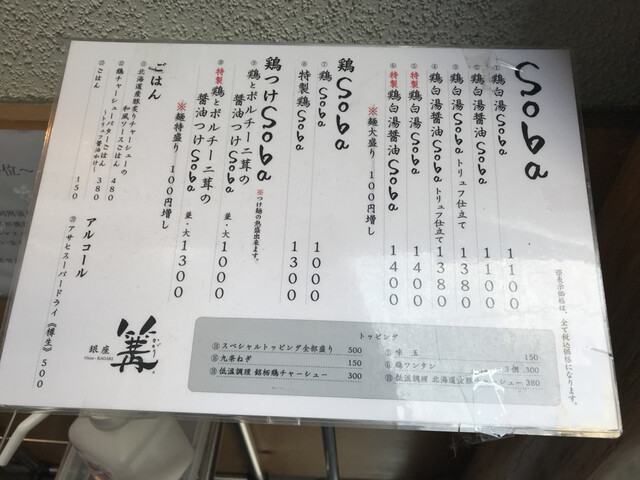 Soba
① 鶏白湯Soba 1100
② 鶏白湯醤油Soba 1100
③ 鶏白湯Sobaトリュフ仕立て 1380
④ 鶏白湯醤油Sobaトリュフ仕立て 1380
⑤ 特製鶏白湯Soba 1400
⑥ 特製鶏白湯醤油Soba 1400
※麺大盛り 100円増し
鶏Soba
⑦ 鶏Soba 1000
⑧ 特製鶏Soba 1300
鶏つけSoba
※つけ麺の熱盛出来ます。
⑨ 鶏とポルチーニ茸の
醤油つけSoba 並・大 1000
⑩ 特製鶏とポルチーニ茸の
醤油つけSoba 並・大 1300
※麺特盛り 100円増し
ごはん
北海道産豚炙りチャーシューの
和風ソースごはん 480
鶏チャーシューバターごはん 380
ごはん 150
アルコール
⑳ アサヒスーパードライ《樽生》 500
篝
かがり
銀座
Ginza・KAGARI
トッピング
味玉 150
鶏ワンタン 3個 300
低温調理 北海道産豚 チャーシュー 380
スペシャルトッピング全部盛り 500
九条ねぎ 150
低温調理 銘柄鶏チャーシュー 300
※表示価格は、全て税込価格になります。